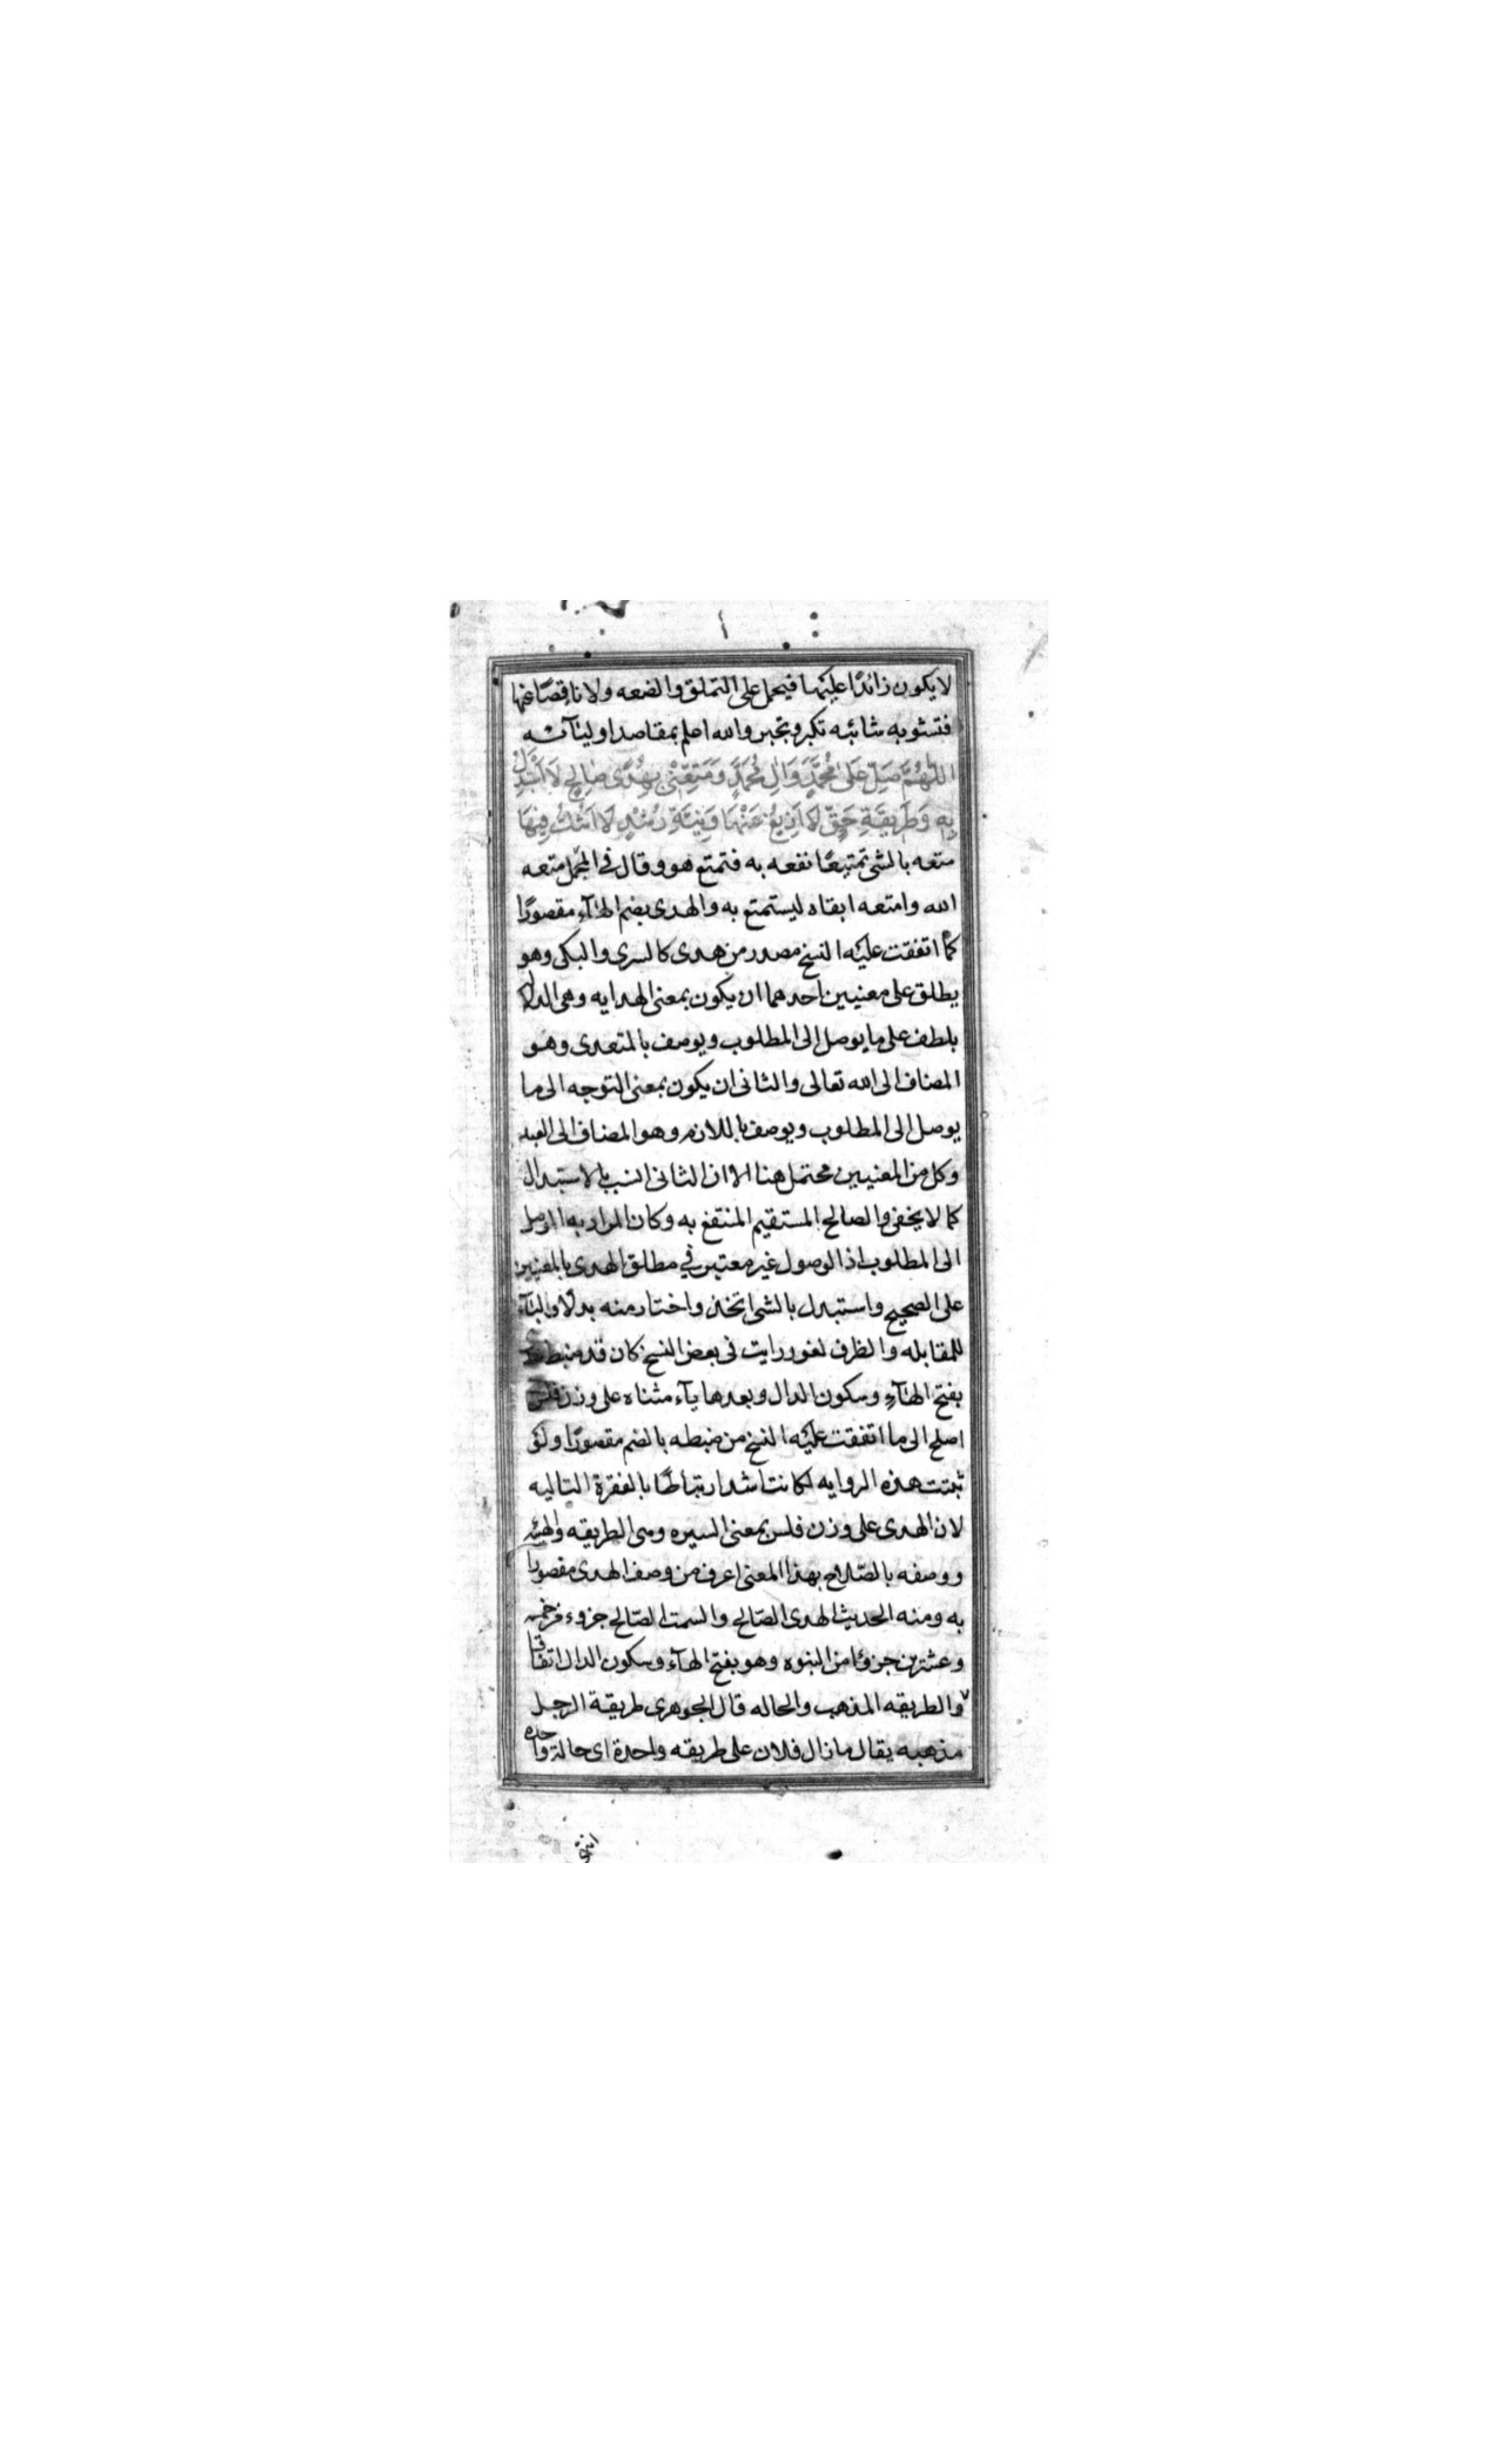 لا يكون زائدًا عليهما فيحمل على التملق والضعه ولا ناقصًا عنها
فتشوبه شائبه تكبر وتجبر والله اعلم بمقاصد اوليائه
اللّٰهُمَّ صَلِّ عَلى مُحَمَّدٍ وَالِ مُحَمَّدٍ وَمَتِّعْنى بِهُدًى صٰالِحٍ لَا اَسْتَبْدِلُ
بِهِ وَطَريقَةِ حَقٍّ لَا اَزيغُ عَنْهَا وَنِيَّةِ رُشْدٍ لَا اَشُكُّ فِيهَا
متعه بالشى تمتيعًا نفعه به فتمتع هو وقال فى المجمل متعه
الله وامتعه ابقاه ليستمتع به والهدى بضم الهآء مقصورًا
كما اتفقت عليه النسخ مصدر من هدى كالسرى والبكى وهو
يطلق على معنيين احدهما ان يكون بمعنى الهدايه وهى الدلالة
بلطف على ما يوصل الى المطلوب ويوصف بالمتعدى وهو
المضاف الى الله تعالى والثانى ان يكون بمعنى التوجه الى ما
يوصل الى المطلوب ويوصف باللازم وهو المضاف الى العبد
وكل من المعنيين محتمل هنا الا ان الثانى انسب بالاستبدال
كما لا يخفى والصالح المستقيم المنتفع به وكان المراد به الموصل
الى المطلوب اذ الوصول غير معتبر فى مطلق الهدى بالمعنيين
على الصحيح واستبدل بالشى اتخذ واختار منه بدلا والبآء
للمقابله والظرف لغو ورايت فى بعض النسخ كان قد ضبط
بفتح الهآء وسكون الدال وبعدها يآء مثناه على وزن فلس
اصلح الى ما اتفقت عليه النسخ من ضبطه بالضم مقصورًا ولئن
ثبتت هذه الروايه لكانت اشد ارتباطًا بالفقرة التاليه
لان الهدى على وزن فلس بمعنى السيره وهى الطريقه والهيئه
ووصفه بالصّلاح بهذا المعنى اعرف من وصف الهدى مقصورا
به ومنه الحديث الهدى الصّالح والسمت الصّالح جزوء من خمسه
وعشرين جزوًا من النبوه وهو بفتح الهآء وسكون الدال اتفاقا
والطريقه المذهب والحاله قال الجوهرى طريقة الرجل
مذهبه يقال ما زال فلان على طريقه واحدة اى حالة واحده
انتهى